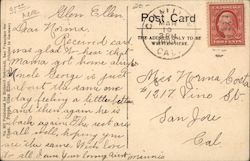 Glen Ellen
Dear Norma,
Received card
was glad to hear that
Mama got home alright
Uncle George is just
about the same one
day feeling a little better
and then again he is
back again. The rest are
all well, hoping you
are the same. With love
to all I am Your loving
Mamie
Post Card
THE ADDRESS ONLY TO BE
WRITTEN HERE.
CAL.
Miss Norma
#1217 Pine St.
San Jose
Cal